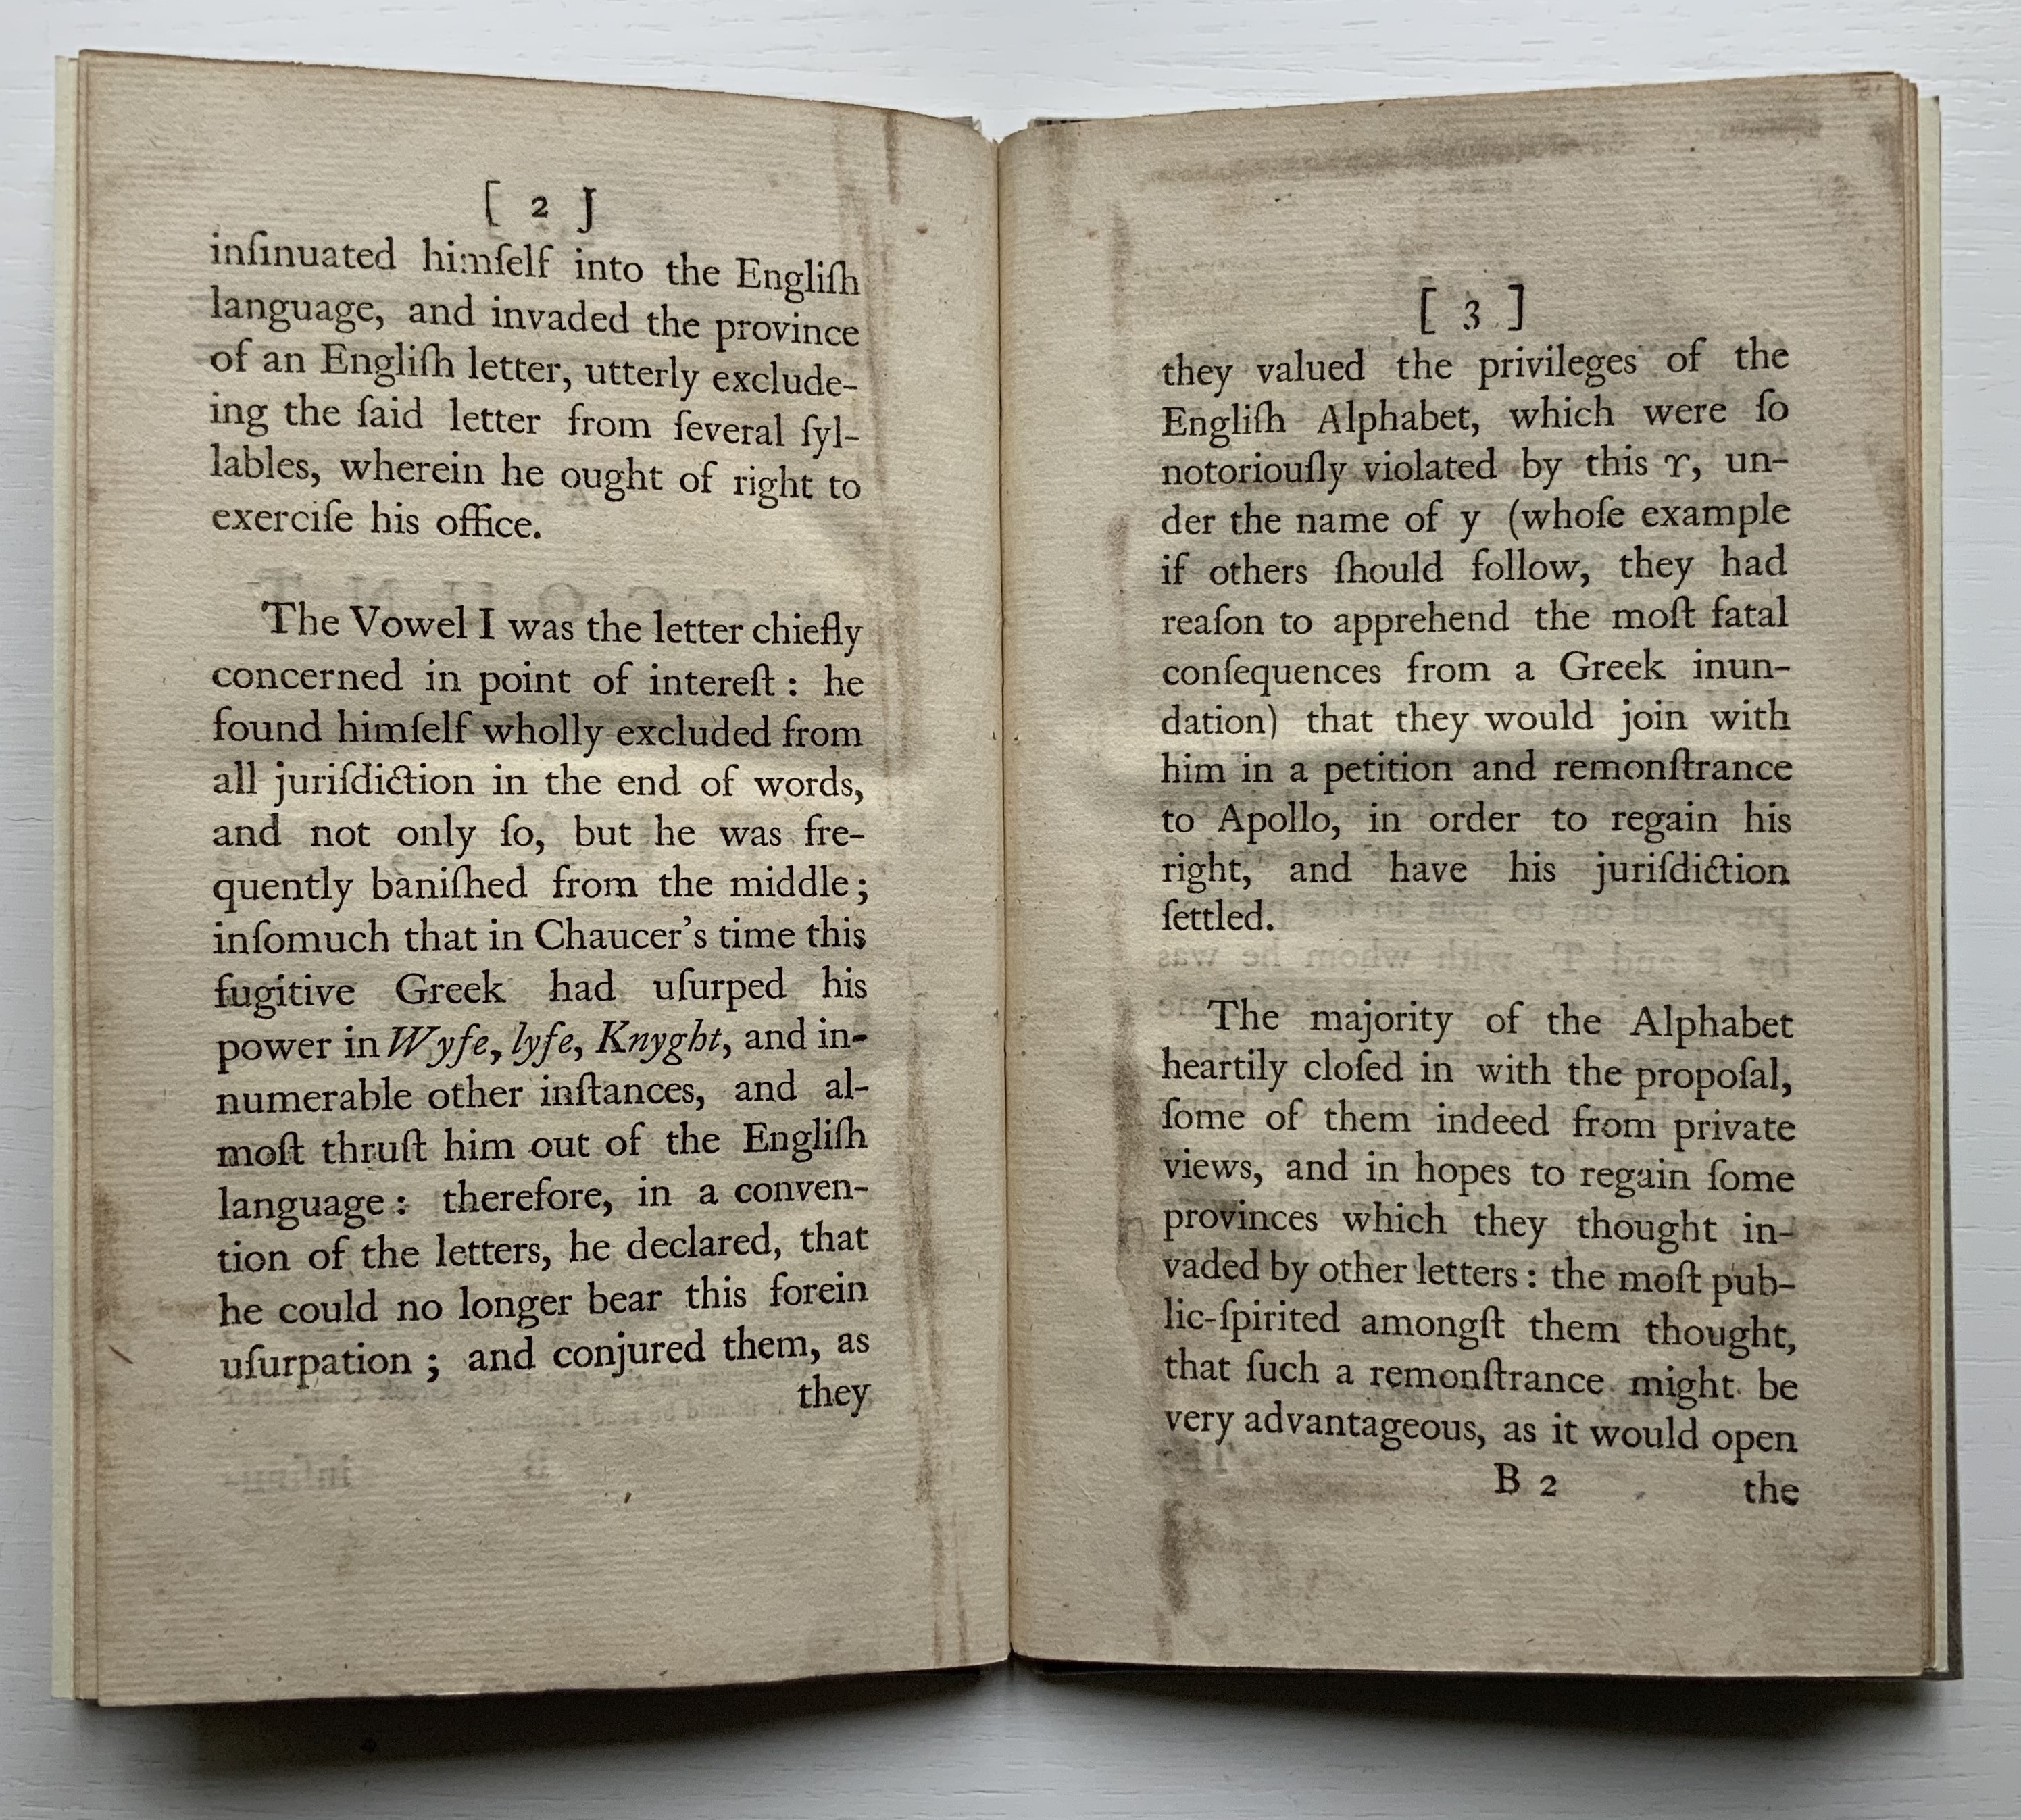 [ 2 J
inſinuated himſelf into the Engliſh
language, and invaded the province
of an Engliſh letter, utterly exclude-
ing the ſaid letter from ſeveral ſyl-
lables, wherein he ought of right to
exerciſe his office.
The Vowel I was the letter chiefly
concerned in point of intereſt : he
found himſelf wholly excluded from
all juriſdiction in the end of words,
and not only ſo, but he was fre-
quently baniſhed from the middle ;
inſomuch that in Chaucer's time this
fugitive Greek had uſurped his
power in Wyfe, lyfe, Knyght, and in-
numerable other inſtances, and al-
moſt thruſt him out of the Engliſh
language : therefore, in a conven-
tion of the letters, he declared, that
he could no longer bear this forein
uſurpation ; and conjured them, as
they
[ 3 ]
they valued the privileges of the
Engliſh Alphabet, which were ſo
notoriouſly violated by this ϒ, un-
der the name of y (whoſe example
if others ſhould follow, they had
reaſon to apprehend the moſt fatal
conſequences from a Greek inun-
dation) that they would join with
him in a petition and remonſtrance
to Apollo, in order to regain his
right, and have his juriſdiction
ſettled.
The majority of the Alphabet
heartily cloſed in with the propoſal,
ſome of them indeed from private
views, and in hopes to regain ſome
provinces which they thought in-
vaded by other letters : the moſt pub-
lic-ſpirited amongſt them thought,
that ſuch a remonſtrance might be
very advantageous, as it would open
B 2 the